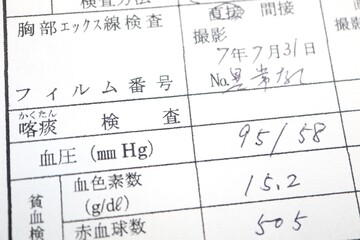 検査方法
胸部エックス線検査 直接 間接
撮影
7年7月31日
フィルム番号 No. 異常なし
かくたん
喀痰 検査
血圧(mmHg) 95/58
貧血検
血色素数
(g/dℓ) 15.2
赤血球数 505